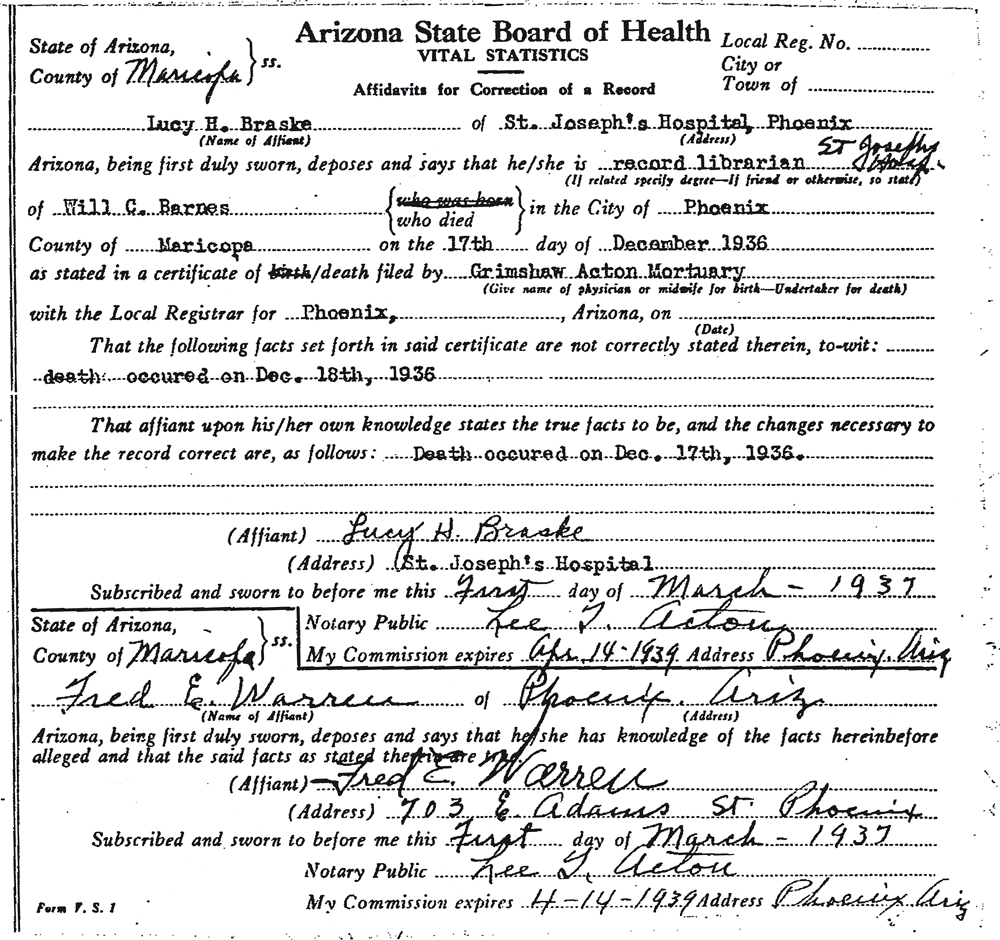 Arizona State Board of Health
VITAL STATISTICS
Affidavits for Correction of a Record
State of Arizona,
County of Maricopa } ss.
Local Reg. No.
City or
Town of
Lucy H. Braske of St. Joseph's Hospital, Phoenix
(Name of Affiant) (Address)
Arizona, being first duly sworn, deposes and says that he/she is record librarian St Josephs Hosp.
(If related specify degree—If friend or otherwise, so state)
of Will C. Barnes { who was born
who died } in the City of Phoenix
County of Maricopa on the 17th day of December 1936
as stated in a certificate of birth/death filed by Grimshaw Acton Mortuary
(Give name of physician or midwife for birth—Undertaker for death)
with the Local Registrar for Phoenix, , Arizona, on
(Date)
That the following facts set forth in said certificate are not correctly stated therein, to-wit:
death occured on Dec. 18th, 1936
That affiant upon his/her own knowledge states the true facts to be, and the changes necessary to
make the record correct are, as follows: Death occured on Dec. 17th, 1936.
(Affiant) Lucy H. Braske
(Address) St. Joseph's Hospital
Subscribed and sworn to before me this First day of March - 1937
Notary Public Lee T. Acton
My Commission expires Apr. 14-1939 Address Phoenix, Ariz
State of Arizona,
County of Maricopa } ss.
Fred E. Warren of Phoenix. Ariz.
(Name of Affiant) (Address)
Arizona, being first duly sworn, deposes and says that he/she has knowledge of the facts hereinbefore
alleged and that the said facts as stated therein are true.
(Affiant) Fred E. Warren
(Address) 703 E Adams St. Phoenix
Subscribed and sworn to before me this First day of March - 1937
Notary Public Lee T. Acton
My Commission expires 4-14-1939 Address Phoenix Ariz
Form V. S. 1